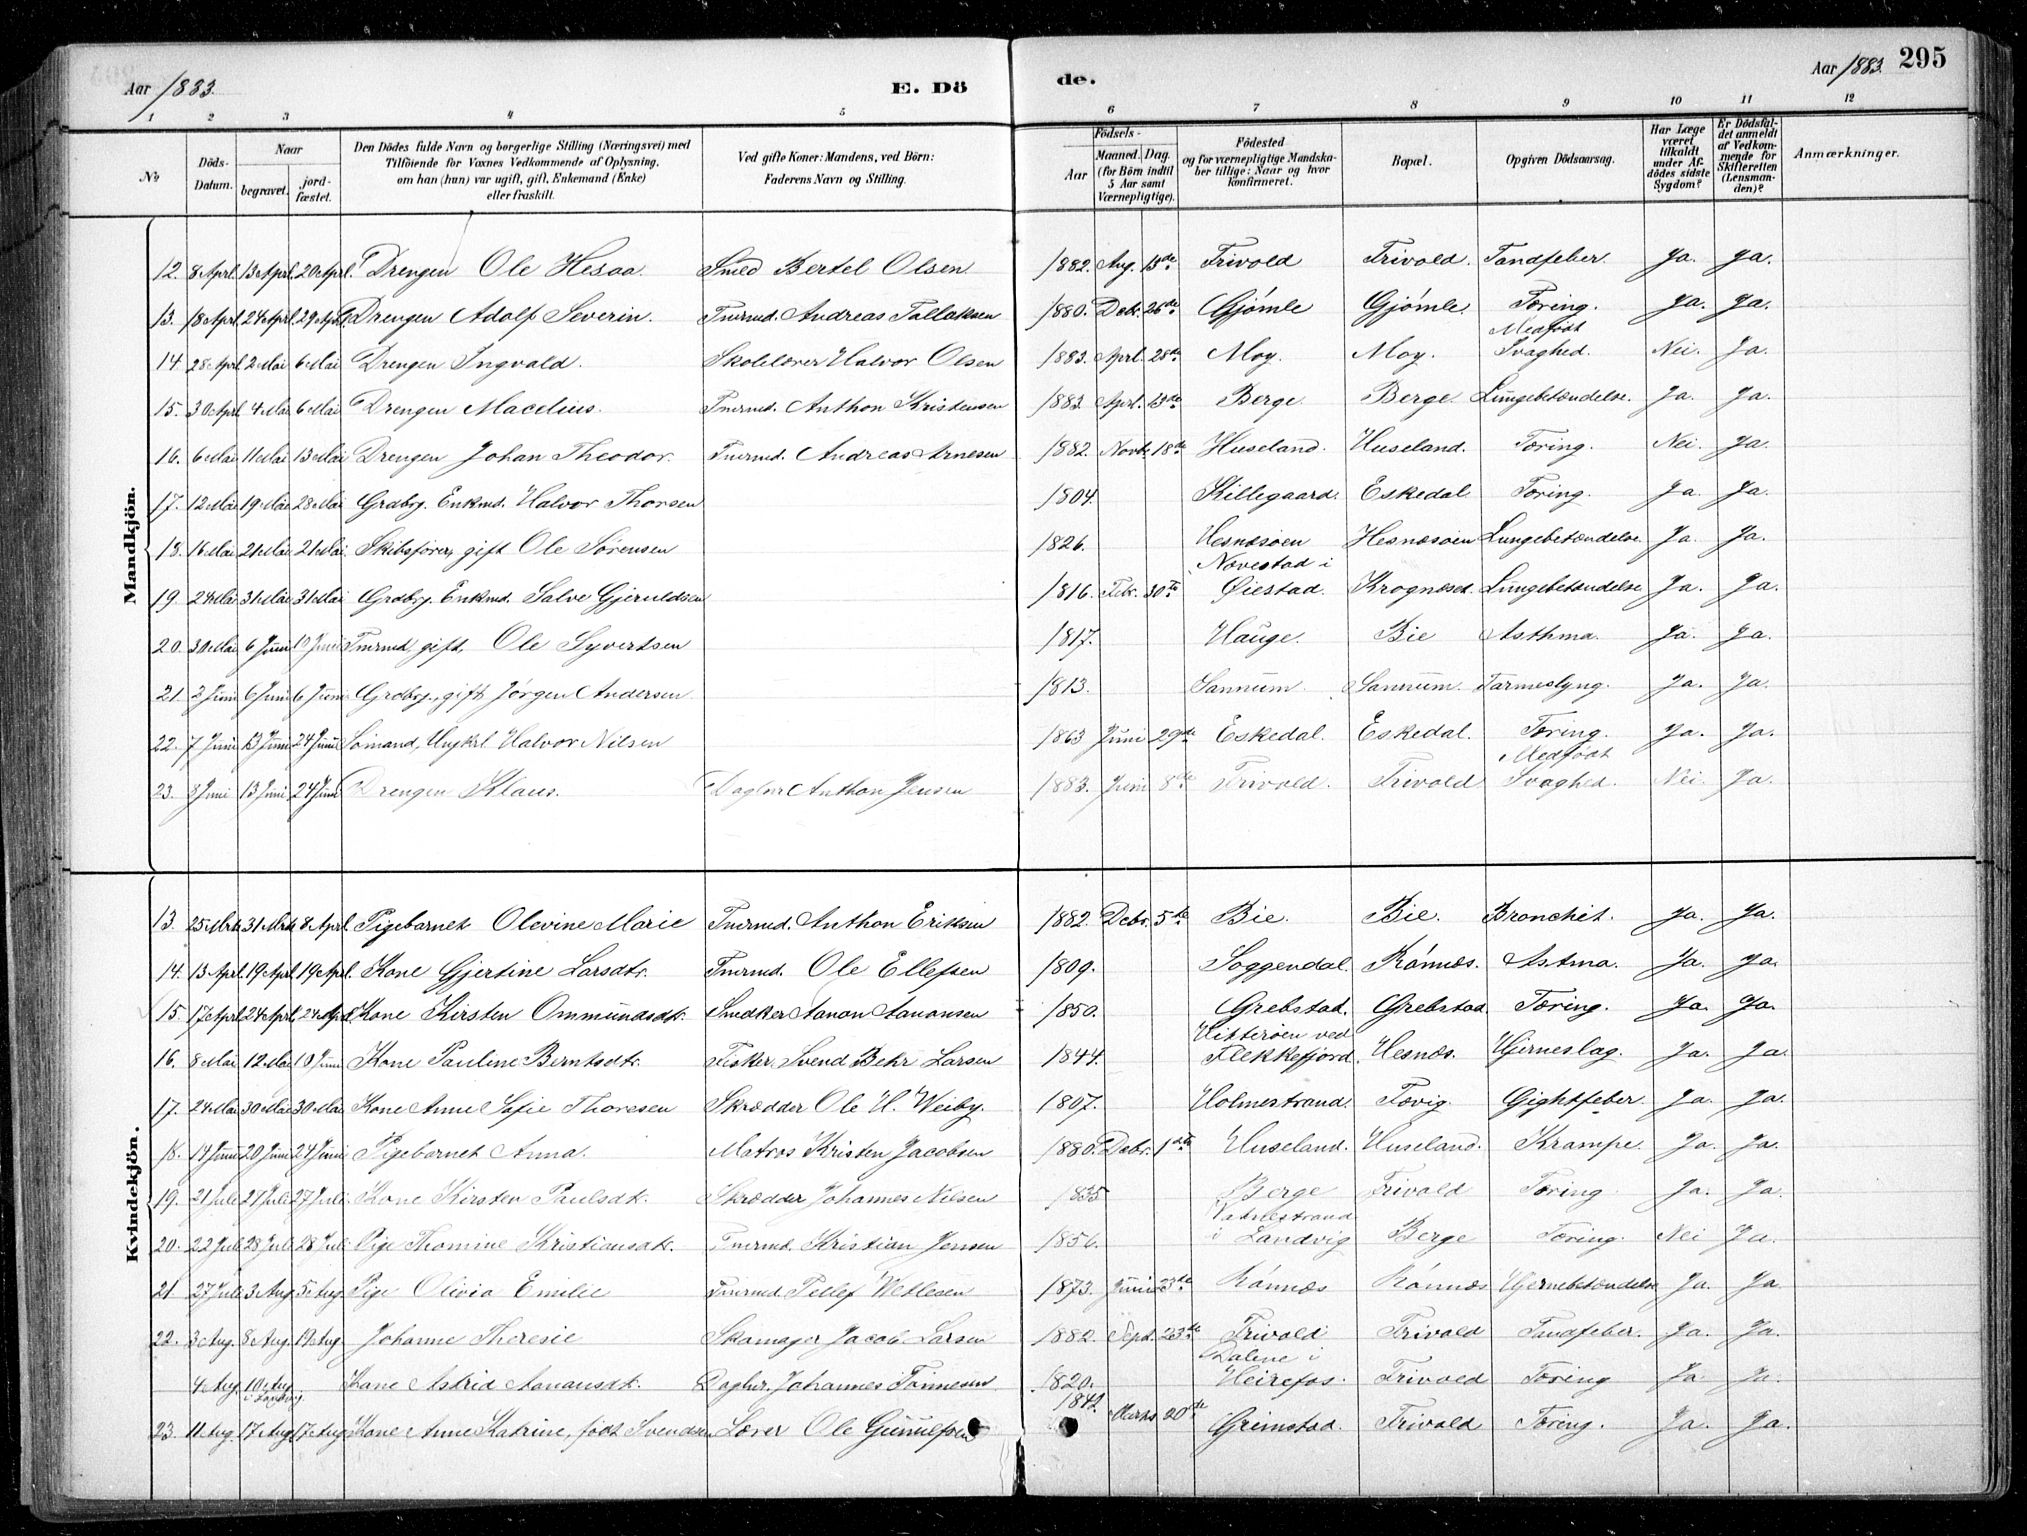 Aar 1883.
E. Dö
de.
Aar 1883.
295
1 2 3 4 5 6 7 8 9 10 11 12
No
Döds-Datum.
Naar
begravet.
jord-fæstet.
Den Dödes fulde Navn og borgerlige Stilling (Næringsvei) med
Tilföiende for Voxnes Vedkommende af Oplysning,
om han (hun) var ugift, gift, Enkemand (Enke)
eller fraskilt.
Ved gifte Koner: Mandens, ved Börn:
Faderens Navn og Stilling.
Födsels-
Aar
Maaned. Dag.
(for Börn indtil
5 Aar samt
Værnepligtige).
Födested
og for værnepligtige Mandska-
ber tillige: Naar og hvor
konfirmeret.
Bopæl.
Opgiven Dödsaarsag.
Har Læge
været
tilkaldt
under Af-
dödes sidste
Sygdom?
Er Dödsfal-
det anmeldt
af Vedkom-
mende for
Skifteretten
(Lensman-
den)?
Anmærkninger.
Mandkjön.
12. 8 Aprl. 13 Aprl. 20 Aprl. Drengen Ole Hesaa. Smed Bertel Olsen 1882. Aug. 13de Frivold Frivold. Tandfeber. Ja. Ja.
13. 18 Aprl. 24 Aprl. 29 Aprl. Drengen Adolf Severin. Tmrmd. Andreas Tallaksen 1880. Debr. 26de Gjömle Gjömle. Tæring. Ja. Ja.
14. 28 Aprl. 2 Mai 6 Mai Drengen Ingvald. Skolelærer Halvor Olsen 1883. Aprl. 28de Moy. Moy. Medfödt Svaghed. Nei. Ja.
15. 30 Aprl. 4 Mai 6 Mai Drengen Macelius. Tmrmd. Anthon Kristensen 1883. Aprl. 13de Berge Berge. Lungebetændelse. Ja. Ja.
16. 6 Mai 11 Mai 13 Mai Drengen Johan Theodor. Tmrmd. Andreas Arnesen 1882. Novbr. 18de Huseland. Huseland. Tæring. Nei. Ja.
17. 12 Mai 19 Mai 28 Mai Grdbrg. Enkmd. Halvor Thorsen 1804. Killegaard. Eskedal. Tæring. Ja. Ja.
18. 16 Mai 21 Mai 21 Mai. Skibsförer, gift Ole Sörensen 1826. Hesnæsöen Hesnæsöen Lungebetændelse. Ja. Ja.
19. 24 Mai 31 Mai 31 Mai Grdbrg. Enkmd. Salve Gjeruldsen 1816. Febr. 30te Novestad i Øiestad. Krognæset. Lungebetændelse Ja. Ja.
20. 30 Mai 6 Juni 10 Juni Tmrmd, gift, Ole Syvertsen 1817. Hauge. Bie Asthma. Ja. Ja.
21. 2 Juni 6 Juni 6 Juni Grdbrg., gift Jörgen Andersen 1813. Sannum Sannum. Tarmeslyng. Ja. Ja.
22. 7 Juni 13 Juni 24 Juni Sömand, Ungkrl Halvor Nilsen 1863 Juni 29de Eskedal. Eskedal. Tæring. Ja. Ja.
23. 8 Juni 13 Juni 24 Juni Drengen Klaus. Daglnr Anthon Jensen 1883. Juni 8de Frivold. Frivold Medfödt Svaghed. Nei. Ja.
Kvindekjön.
13. 25 Mrts 31 Mrts 8 Aprl. Pigebarnet Olevine Marie Tmrmd. Anthon Eriksen 1882. Debr. 5te Bie. Bie. Bronchit. Ja. Ja.
14. 13 Aprl. 19 Aprl. 19 Aprl. Kone Gjertine Larsdtr. Tmrmd. Ole Ellefsen 1809. Soggendal. Rönnæs. Astma. Ja. Ja.
15. 17 Aprl. 24 Aprl. 24 Aprl. Kone Kirsten Ommundsdtr. Snedker Aanon Aanonsen 1850. Grebstad. Grebstad. Tæring. Ja. Ja.
16. 8 Mai 12 Mai 10 Juni Kone Pauline Berntsdtr. Fisker Svend Behr Larsen 1844. Hitteröen ved Flekkefjord. Hesnæs. Hjerneslag. Ja. Ja.
17. 24 Mai 30 Mai 30 Mai. Kone Anne Sofie Thoresen Skrædder Ole H. Weiby. 1807. Holmestrand. Fævig. Gightfeber. Ja. Ja.
18. 14 Juni 20 Juni 24 Juni Pigebarnet Anna. Matros Kristen Jacobsen 1880. Debr. 1ste Huseland. Huseland. Krampe. Ja. Ja.
19. 21 Juli 27 Juli 27 Juli. Kone Kirsten Paulsdtr. Skrædder Johannes Nilsen 1835 Berge Frivold Tæring. Ja. Ja.
20. 22 Juli 28 Juli 28 Juli Pige Thomine Kristiansdtr. Tmrmd. Kristian Jensen 1856. i Landvig Berge Tæring. Nei Ja.
21 27 Juli 3 Aug. 5 Aug Pige Olivia Emilie Tmrmd. Tellef Wetlesen 1873. Juni 3de Rönnæs Rönnæs Hjernebetændelse Ja. Ja
22. 3 Aug. 8 Aug. 19 Aug Johanne Theresie Skomager Jacob Larsen 1882. Sept. 23de Frivold Frivold Tandfeber. Ja. Ja.
4 Aug. 10 Aug i Landvig Kone Astrid Aanonsdtr. Daglnr. Johannes Tönnesen 1820. Dalene i Heirefos. Frivold Tæring Ja. Ja.
23. 11 Aug. 17 Aug. 17 Aug Kone Anne Katrine, födt Svendsen Lærer Ole Gunulfsen 1842 Marts 20de Grimstad. Frivold Tæring. Ja. Ja.